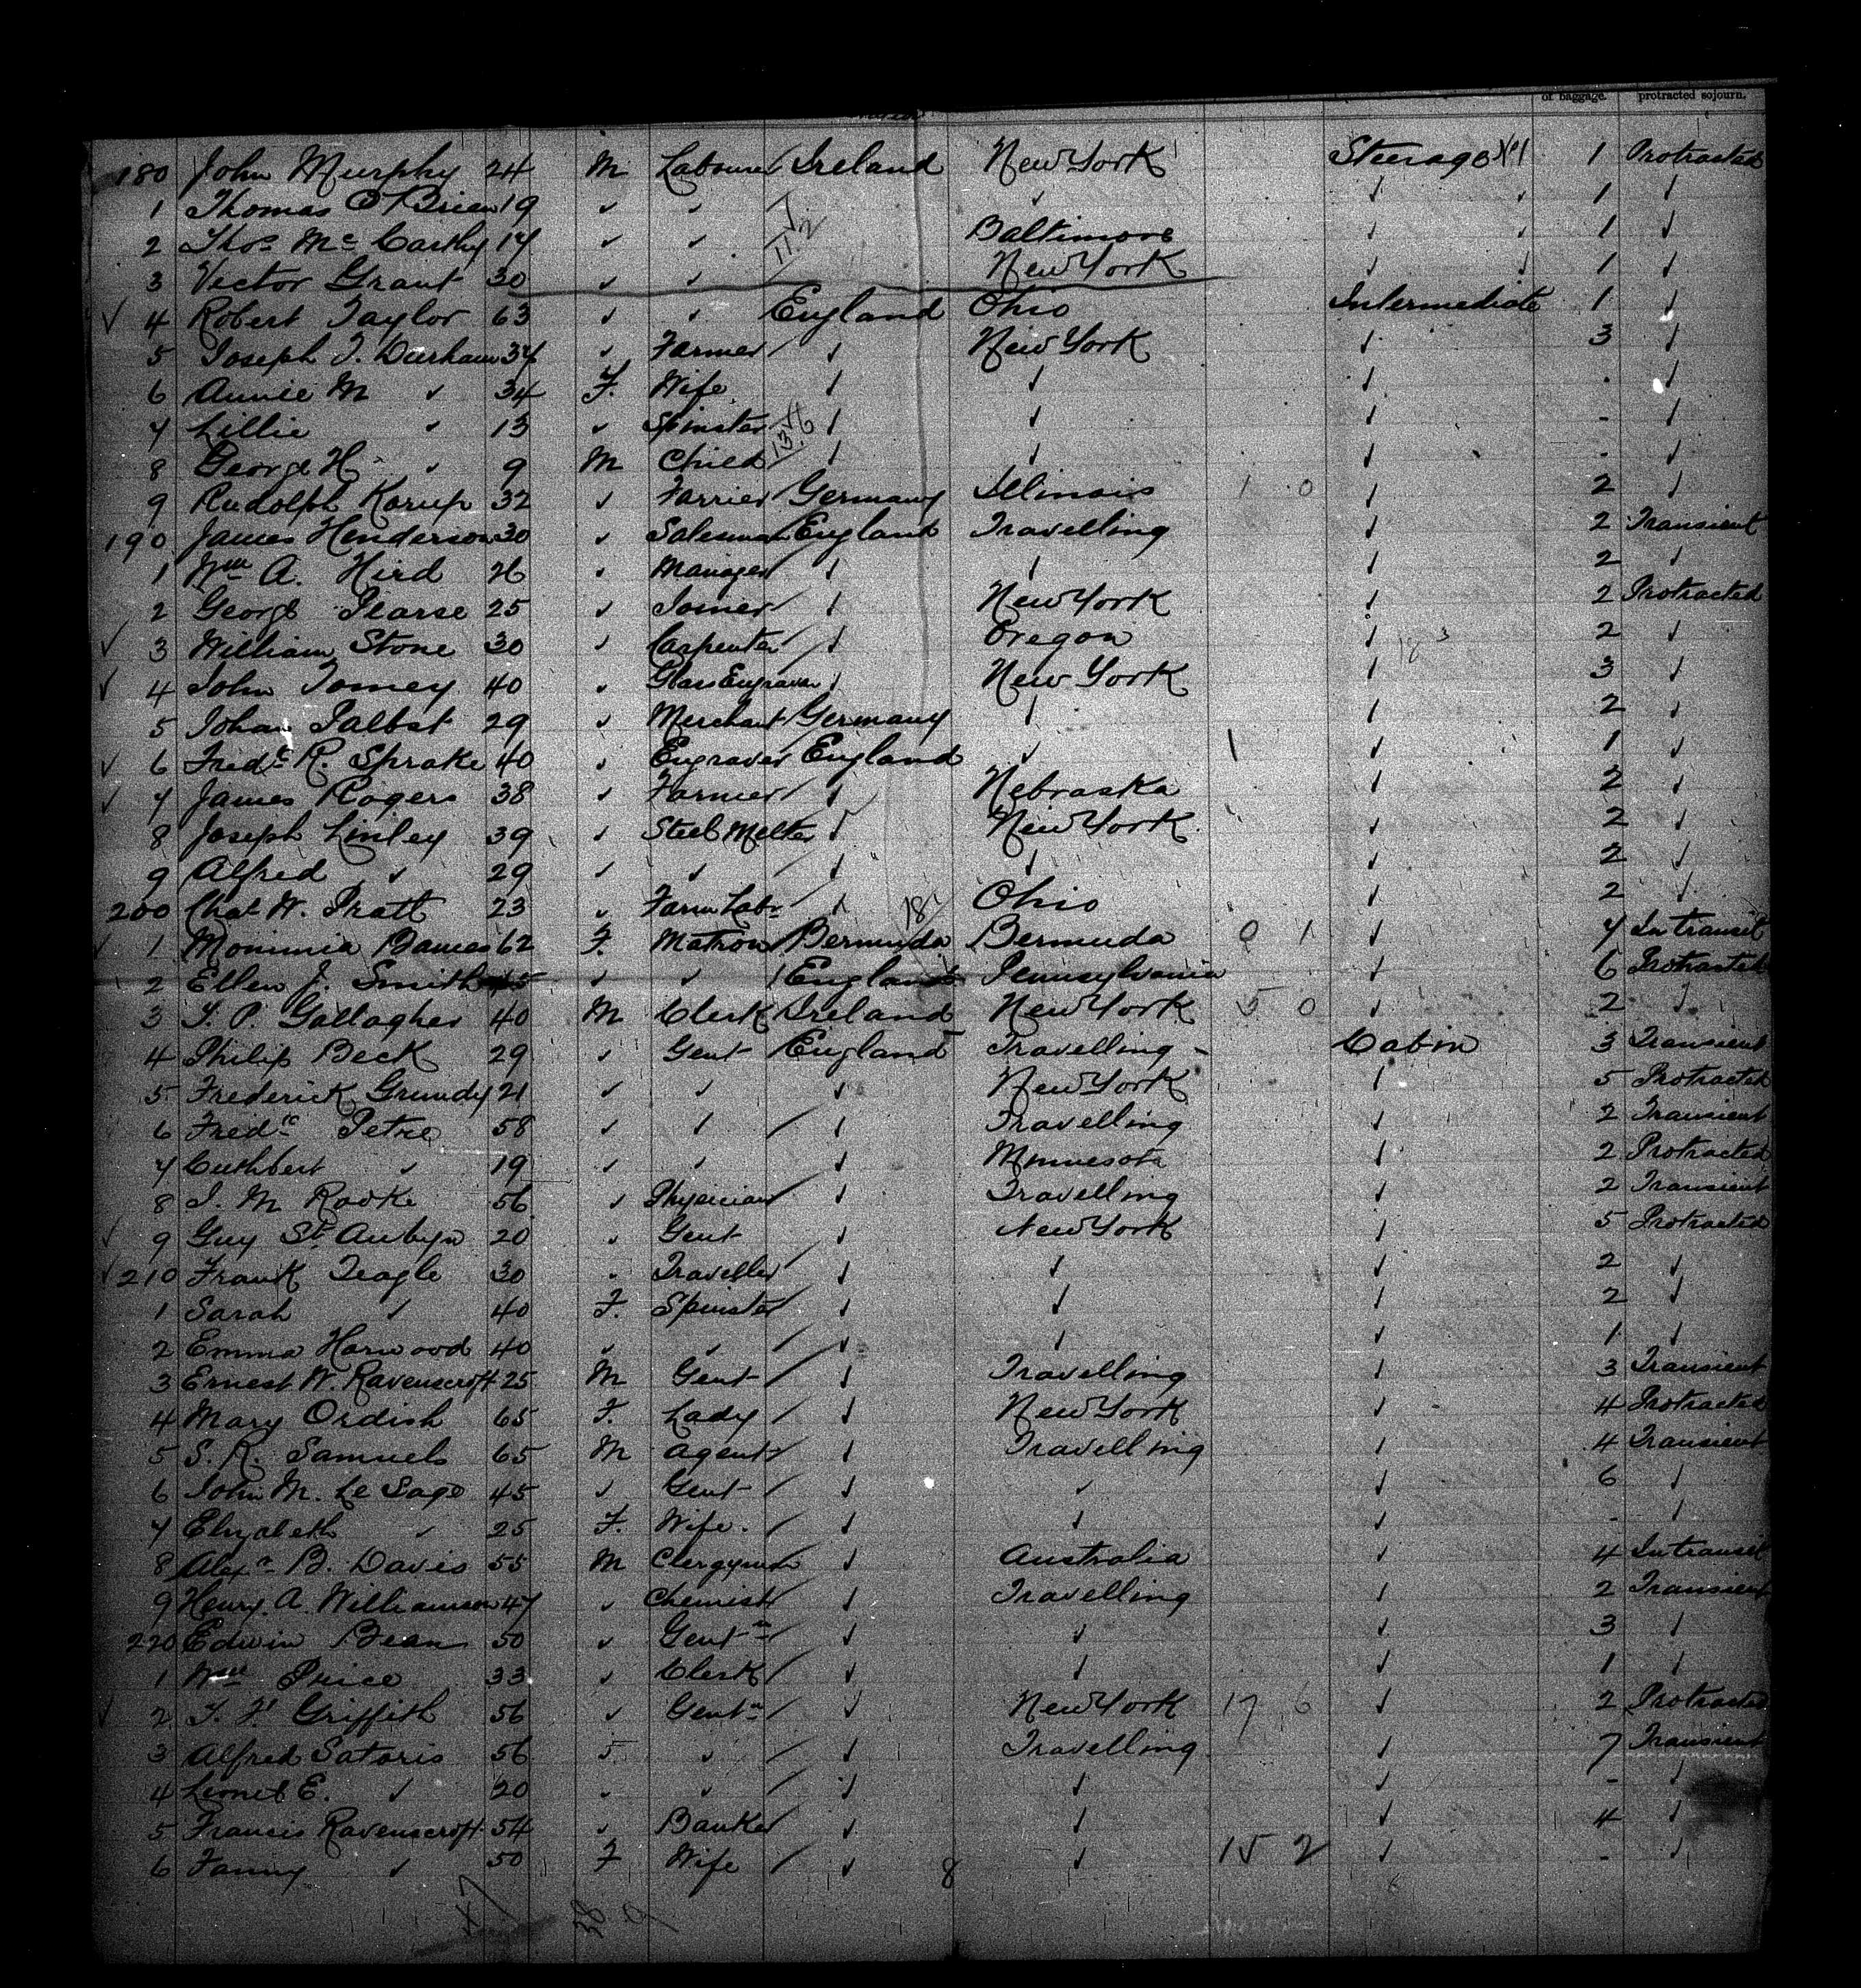 of baggage. protracted sojourn.
180 John Murphy 24 M Labourer Ireland New York Steerage No 1 1 Protracted
1 Thomas O'Brien 19 ✓ ✓ ✓ ✓ ✓ 1 ✓
2 Thos Mc Carthy 17 ✓ ✓ 11/2 Baltimore ✓ ✓ 1 ✓
3 Victor Grant 30 ✓ ✓ New York ✓ ✓ 1 ✓
✓ 4 Robert Taylor 63 ✓ ✓ England Ohio Intermediate 1 ✓
5 Joseph J. Durham 37 ✓ Farmer ✓ New York ✓ 3 ✓
6 Annie M ✓ 34 F. Wife ✓ ✓ ✓ - ✓
7 Lillie ✓ 13 ✓ Spinster ✓ ✓ ✓ - ✓
8 George H ✓ 9 M Child ✓ ✓ ✓ - ✓
9 Rudolph Karup 32 ✓ Farrier Germany Illinois 1 0 ✓ 2 ✓
190 James Henderson 30 ✓ Salesman England Travelling ✓ 2 Transient
1 Wm A. Hird 26 ✓ Manager ✓ ✓ ✓ 2 ✓
2 George Pearse 25 ✓ Joiner ✓ New York ✓ 2 Protracted
✓ 3 William Stone 30 ✓ Carpenter ✓ Oregon ✓ 2 ✓
✓ 4 John Tomey 40 ✓ Glass Engraver ✓ New York ✓ 3 ✓
5 Johan 29 ✓ Merchant Germany ✓ ✓ 2 ✓
✓ 6 Fredc R. Sprake 40 ✓ Engraver England ✓ 1 ✓ 1 ✓
✓ 7 James Rogers 38 ✓ Farmer ✓ Nebraska ✓ 2 ✓
8 Joseph Linley 39 ✓ Steel Melter ✓ New York ✓ 2 ✓
9 Alfred ✓ 29 ✓ ✓ ✓ ✓ ✓ 2 ✓
200 Chas W. Pratt 23 ✓ Farm Labr ✓ Ohio ✓ 2 ✓
✓ 1 62 F. Matron Bermuda Bermuda 0 1 ✓ 7 In transit
2 Ellen J. Smith ✓ ✓ England Pennsylvania ✓ 6 Protracted
3 T. P. Gallagher 40 M Clerk Ireland New York 5 0 ✓ 2 ✓
4 Philip Beck 29 ✓ Gent England Travelling Cabin 3 Transient
5 Frederick Grundy 21 ✓ ✓ ✓ New York ✓ 5 Protracted
6 Fredc Petre 58 ✓ ✓ ✓ Travelling ✓ 2 Transient
7 Cuthbert ✓ 19 ✓ ✓ ✓ Minnesota ✓ 2 Protracted
8 J. M Rooke 56 ✓ Physician ✓ Travelling ✓ 2 Transient
✓ 9 Guy St. Aubyn 20 ✓ Gent ✓ New York ✓ 5 Protracted
✓ 210 Frank Teagle 30 ✓ Traveller ✓ ✓ ✓ 2 ✓
1 Sarah ✓ 40 F. Spinster ✓ ✓ ✓ 2 ✓
2 Emma Harwood 40 ✓ ✓ ✓ ✓ ✓ 1 ✓
3 Ernest W. Ravenscroft 25 M Gent ✓ Travelling ✓ 3 Transient
4 Mary Ordish 65 F. Lady ✓ New York ✓ 4 Protracted
5 S. R. Samuels 65 M Agent ✓ Travelling ✓ 4 Transient
6 John M. Le Sage 45 ✓ Gent ✓ ✓ ✓ 6 ✓
7 Elizabeth ✓ 25 F. Wife. ✓ ✓ ✓ - ✓
8 Alexr B. Davis 55 M Clergyman ✓ Australia ✓ 4 In transit
9 Henry. A. Williamson 47 ✓ Chemist ✓ Travelling ✓ 2 Transient
220 Edwin Bean 50 ✓ Gentn ✓ ✓ ✓ 3 ✓
1 Wm Price 33 ✓ Clerk ✓ ✓ ✓ 1 ✓
✓ 2 T. F. Griffith 56 ✓ Gentn ✓ New York 17 6 ✓ 2 Protracted
3 Alfred Satoris 56 ✓ ✓ Travelling ✓ 7 Transient
4 Lionel E. ✓ 20 ✓ ✓ ✓ ✓ ✓ - ✓
5 Francis Ravenscroft 54 ✓ Banker ✓ ✓ ✓ 4 ✓
6 Fanny ✓ 50 F Wife ✓ 8 ✓ 15 2 ✓ - ✓
47 38 9